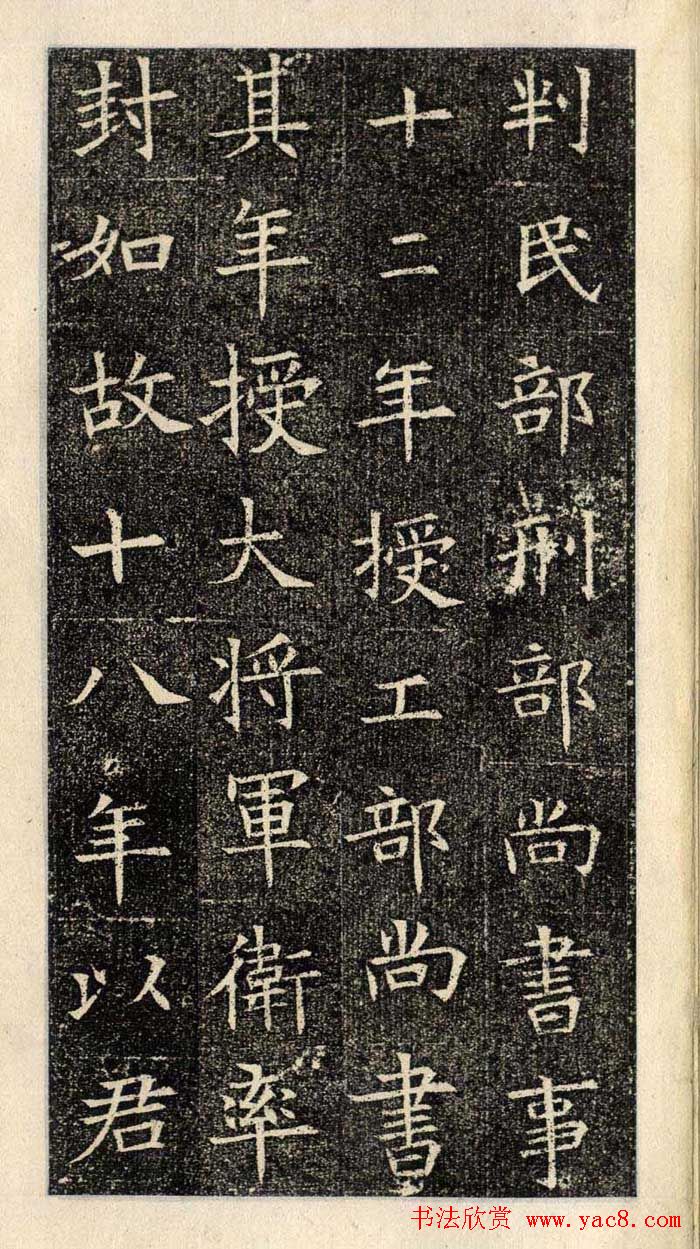 判民部刑部尚書事
十二年授工部尚書
其年授大將軍衛率
封如故十八年以君
书法欣赏 www.yac8.com